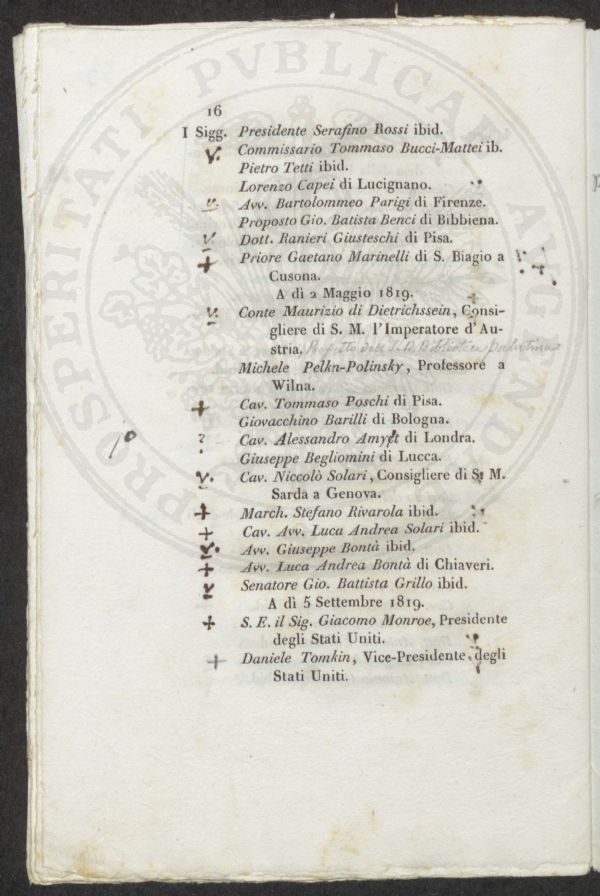 16
I Sigg. Presidente Serafino Rossi ibid.
V. Commissario Tommaso Bucci-Mattei ib.
Pietro Tetti ibid.
Lorenzo Capei di Lucignano.
v. Avv. Bartolommeo Parigi di Firenze.
Proposto Gio. Batista Benci di Bibbiena.
V. Dott. Ranieri Giusteschi di Pisa.
+ Priore Gaetano Marinelli di S. Biagio a
Cusona.
A dì 2 Maggio 1819.
V. Conte Maurizio di Dietrichssein, Consi-
gliere di S. M. l'Imperatore d'Au-
stria. Prefetto dell' I. R. Biblioteca palatina
Michele Pelkn-Polinsky, Professore a
Wilna.
+ Cav. Tommaso Poschi di Pisa.
Giovacchino Barilli di Bologna.
? Cav. Alessandro Amyet di Londra.
Giuseppe Begliomini di Lucca.
V. Cav. Niccolò Solari, Consigliere di S. M.
Sarda a Genova.
+ March. Stefano Rivarola ibid.
+ Cav. Avv. Luca Andrea Solari ibid.
V. Avv. Giuseppe Bontà ibid.
+ Avv. Luca Andrea Bontà di Chiaveri.
V Senatore Gio. Battista Grillo ibid.
A dì 5 Settembre 1819.
+ S. E. il Sig. Giacomo Monroe, Presidente
degli Stati Uniti.
+ Daniele Tomkin, Vice-Presidente degli
Stati Uniti.
PROSPERITATI PVBLICAE AVGENDAE